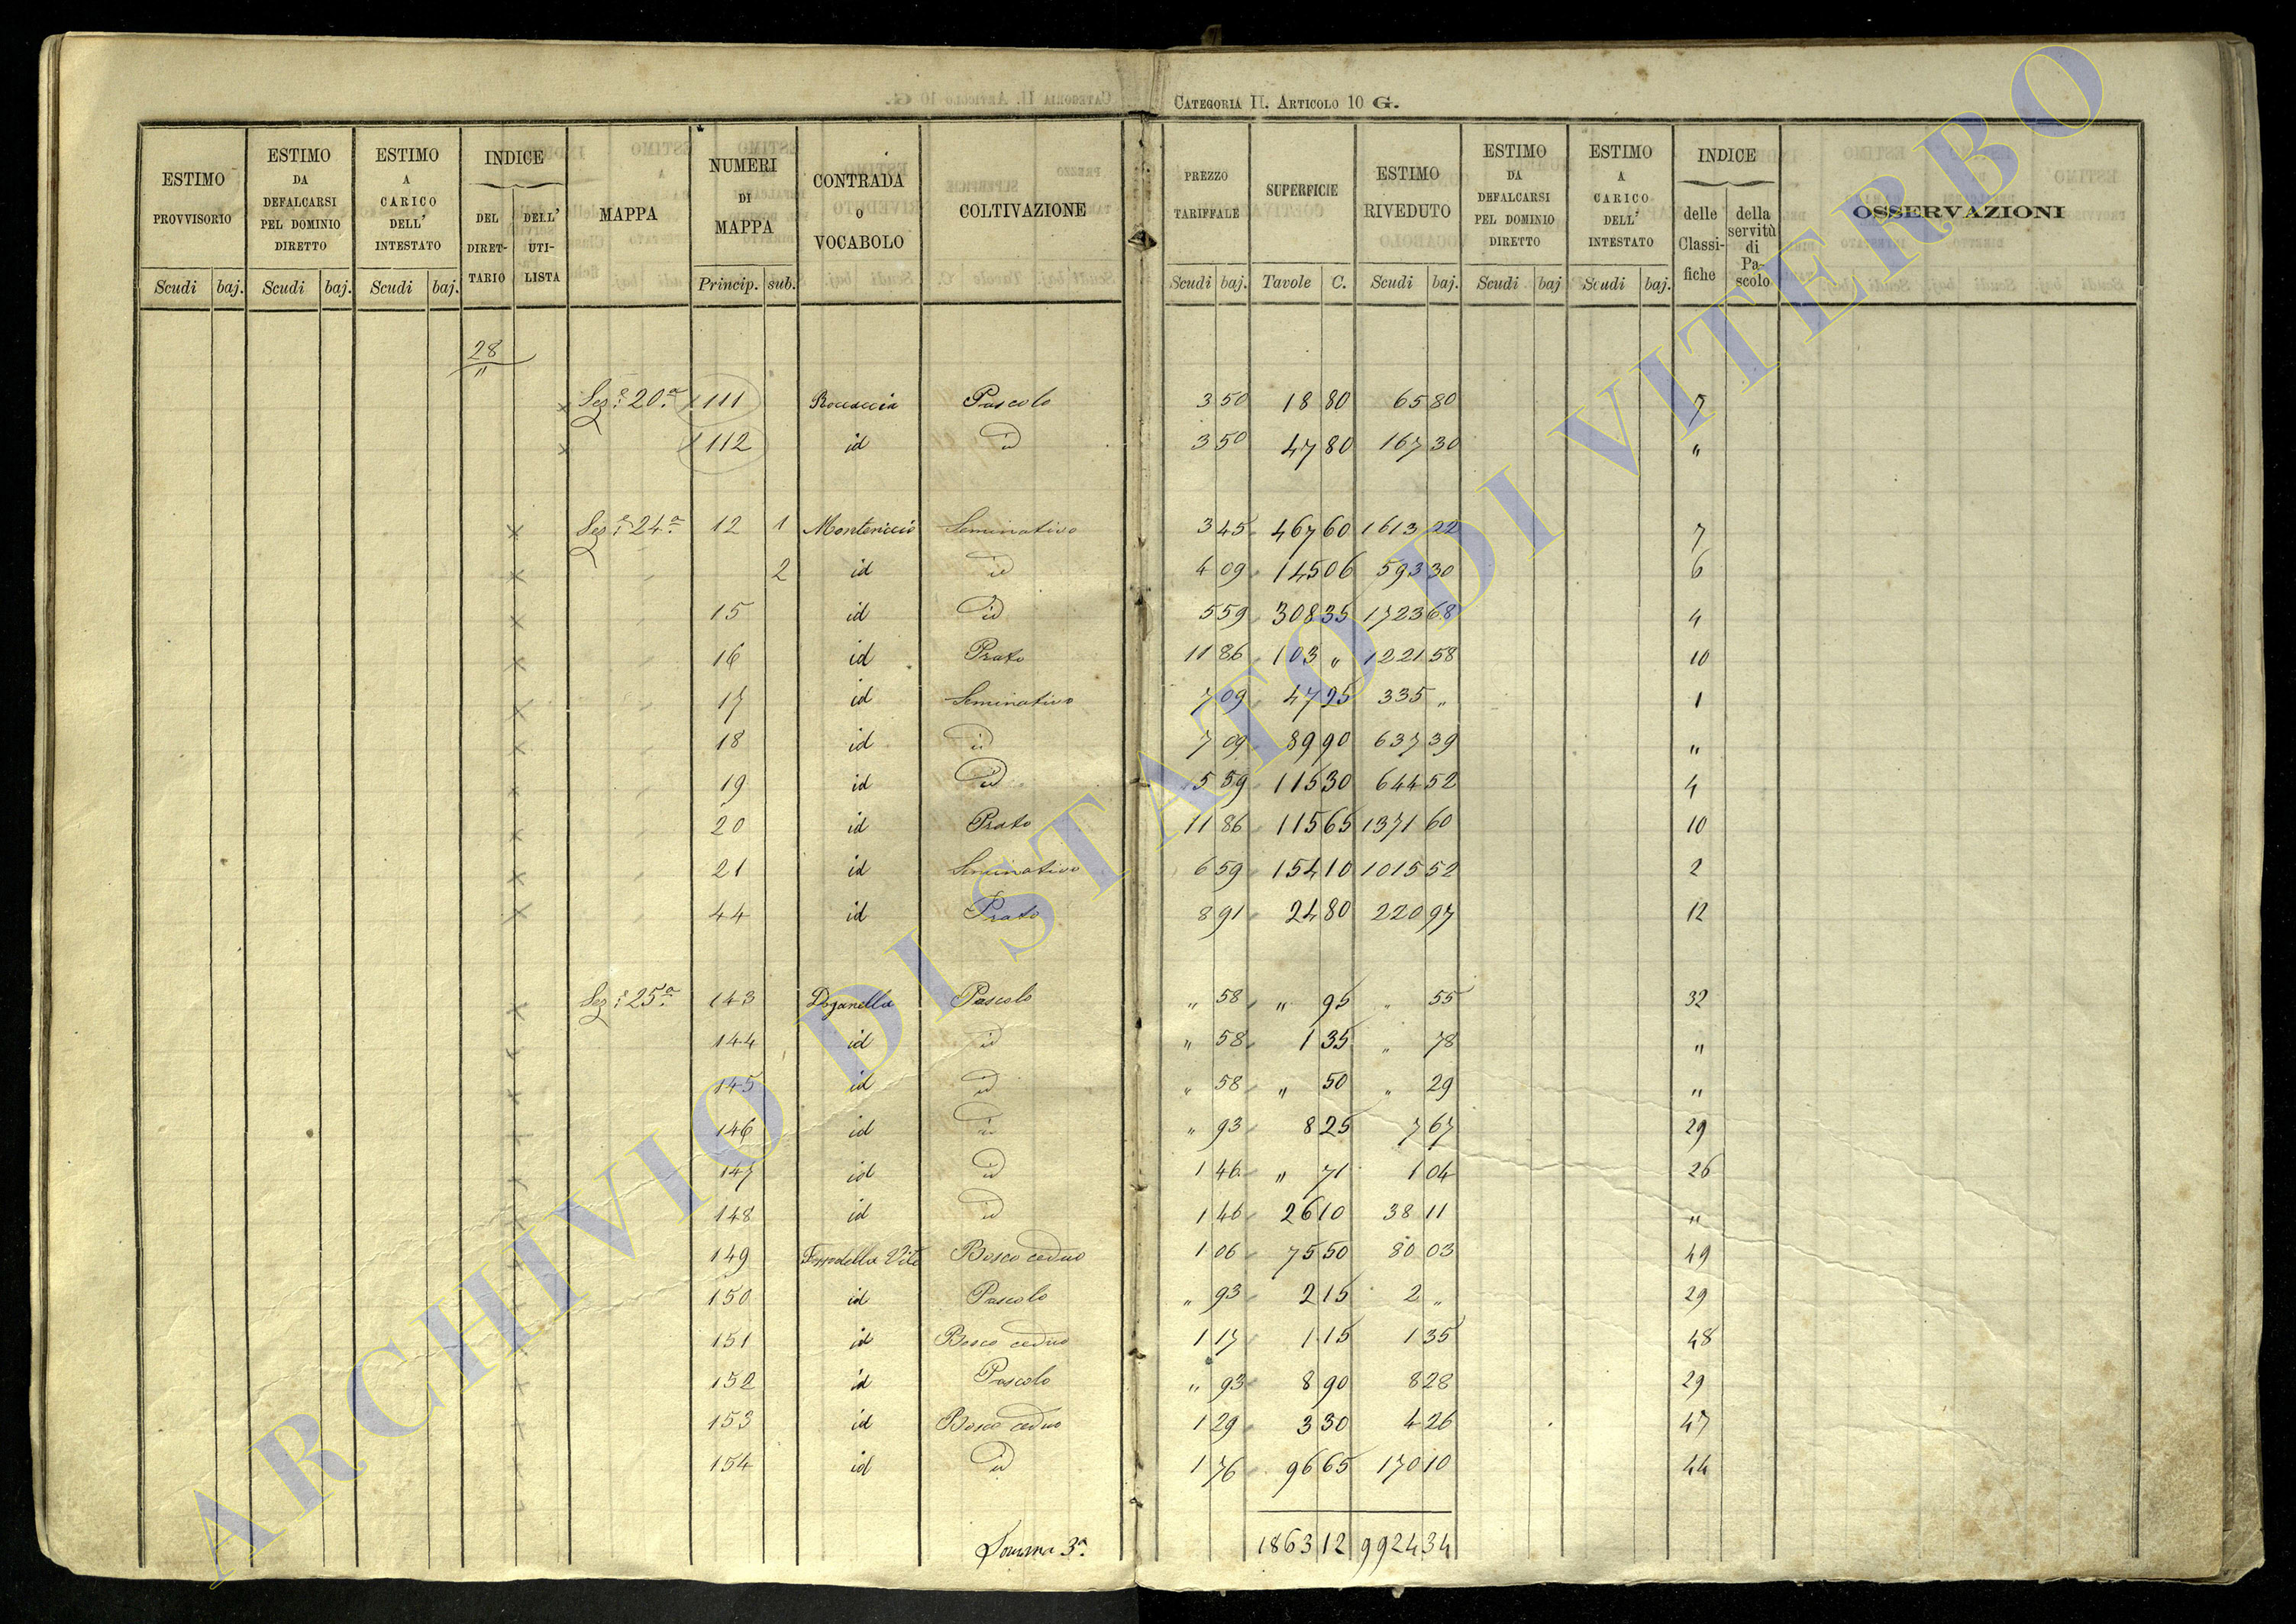 CATEGORIA II. ARTICOLO 10 G.
ESTIMO PROVVISORIO | ESTIMO DA DEFALCARSI PEL DOMINIO DIRETTO | ESTIMO A CARICO DELL' INTESTATO | INDICE DEL DIRETTARIO | DELL' UTILISTA | MAPPA | NUMERI DI MAPPA | CONTRADA O VOCABOLO | COLTIVAZIONE | PREZZO TARIFFALE | SUPERFICIE | ESTIMO RIVEDUTO | ESTIMO DA DEFALCARSI PEL DOMINIO DIRETTO | ESTIMO A CARICO DELL' INTESTATO | INDICE delle Classifiche | della servitù di Pascolo | OSSERVAZIONI
Scudi baj. | Scudi baj. | Scudi baj. | Princip. sub. | Scudi baj. | Tavole C. | Scudi baj. | Scudi baj | Scudi baj.
28 "
Sez:e 20a 111 Roccaccia Pascolo 3 50 18 80 65 80 7
112 id id 3 50 47 80 167 30 "
Sez:e 24a 12 1 Montericcio Seminativo 3 45 467 60 1613 22 7
2 id id 4 09 145 06 593 30 6
15 id id 5 59 308 35 1723 68 4
16 id Prato 11 86 103 " 1221 58 10
17 id Seminativo 7 09 47 25 335 " 1
18 id id 7 09 89 90 637 39 "
19 id id 5 59 115 30 644 52 4
20 id Prato 11 86 115 65 1371 60 10
21 id Seminativo 6 59 154 10 1015 52 2
44 id Prato 8 91 24 80 220 97 12
Sez:e 25a 143 Doganella Pascolo " 58 " 95 " 55 32
144 id id " 58 1 35 " 78 "
145 id id " 58 " 50 " 29 "
146 id id " 93 8 25 7 67 29
147 id id 1 46 " 71 1 04 26
148 id id 1 46 26 10 38 11 "
149 Bosco ceduo 1 06 75 50 80 03 49
150 id Pascolo " 93 2 15 2 " 29
151 id Bosco ceduo 1 17 1 15 1 35 48
152 id Pascolo " 93 8 90 8 28 29
153 id Bosco ceduo 1 29 3 30 4 26 47
154 id id 1 76 96 65 170 10 44
Somma 3a. 1863 12 9924 34
ARCHIVIO DI STATO DI VITERBO